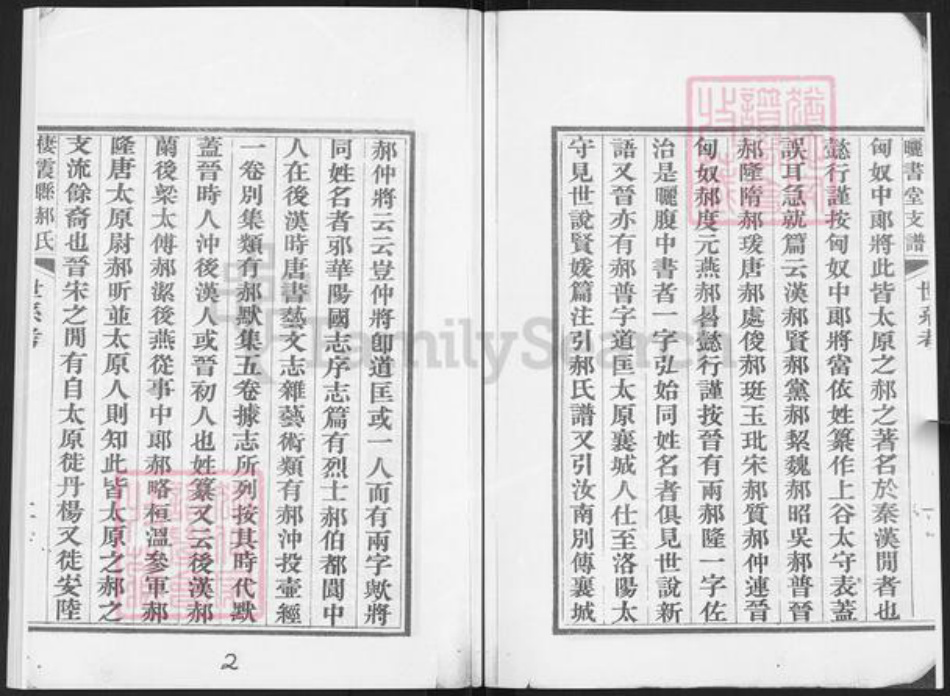 曬書堂支譜
世系考
匈奴中郎將此皆太原之郝之著名於秦漢閒者也
懿行謹按匈奴中郎將當依姓纂作上谷太守表蓋
誤耳急就篇云漢郝賢郝黨郝絜魏郝昭吳郝普晉
郝隆隋郝瑗唐郝處俊郝玭宋郝質郝仲連晉
匈奴郝度元燕郝晷懿行謹按晉有兩郝隆一字佐
治是曬腹中書者一字弘始同姓名者俱見世說新
語又晉亦有郝普字道匡太原襄城人仕至洛陽太
守見世說賢媛篇注引郝氏譜又引汝南別傳襄城
郝仲將云云豈仲將卽道匡或一人而有兩字歟將
同姓名者邪華陽國志序志篇有烈士郝伯都閬中
人在後漢時唐書藝文志雜藝術類有郝沖投壷經
一卷別集類有郝默集五卷據志所列按其時代默
蓋晉時人沖後漢人或晉初人也姓纂又云後漢郝
蘭後梁太傅郝潔後燕從事中郎郝略桓溫參軍郝
隆唐太原尉郝昕並太原人則知此皆太原之郝之
支流餘裔也晉宋之閒有自太原徙丹楊又徙安陸
棲霞縣郝氏
世系考
2
FamilySearch